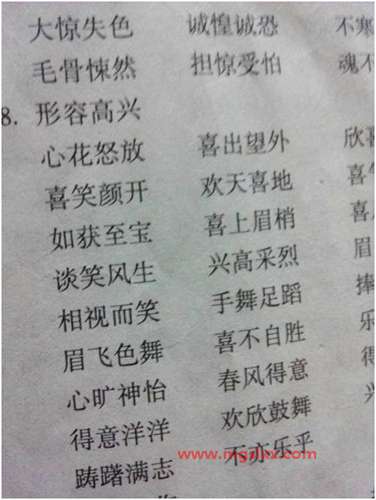 大惊失色 诚惶诚恐 不寒
毛骨悚然 担惊受怕 魂不
8. 形容高兴
心花怒放 喜出望外 欣喜
喜笑颜开 欢天喜地 喜气
如获至宝 喜上眉梢 喜
谈笑风生 兴高采烈 眉
相视而笑 手舞足蹈 捧
眉飞色舞 喜不自胜 乐
心旷神怡 春风得意 得
得意洋洋 欢欣鼓舞 兴
踌躇满志 不亦乐乎